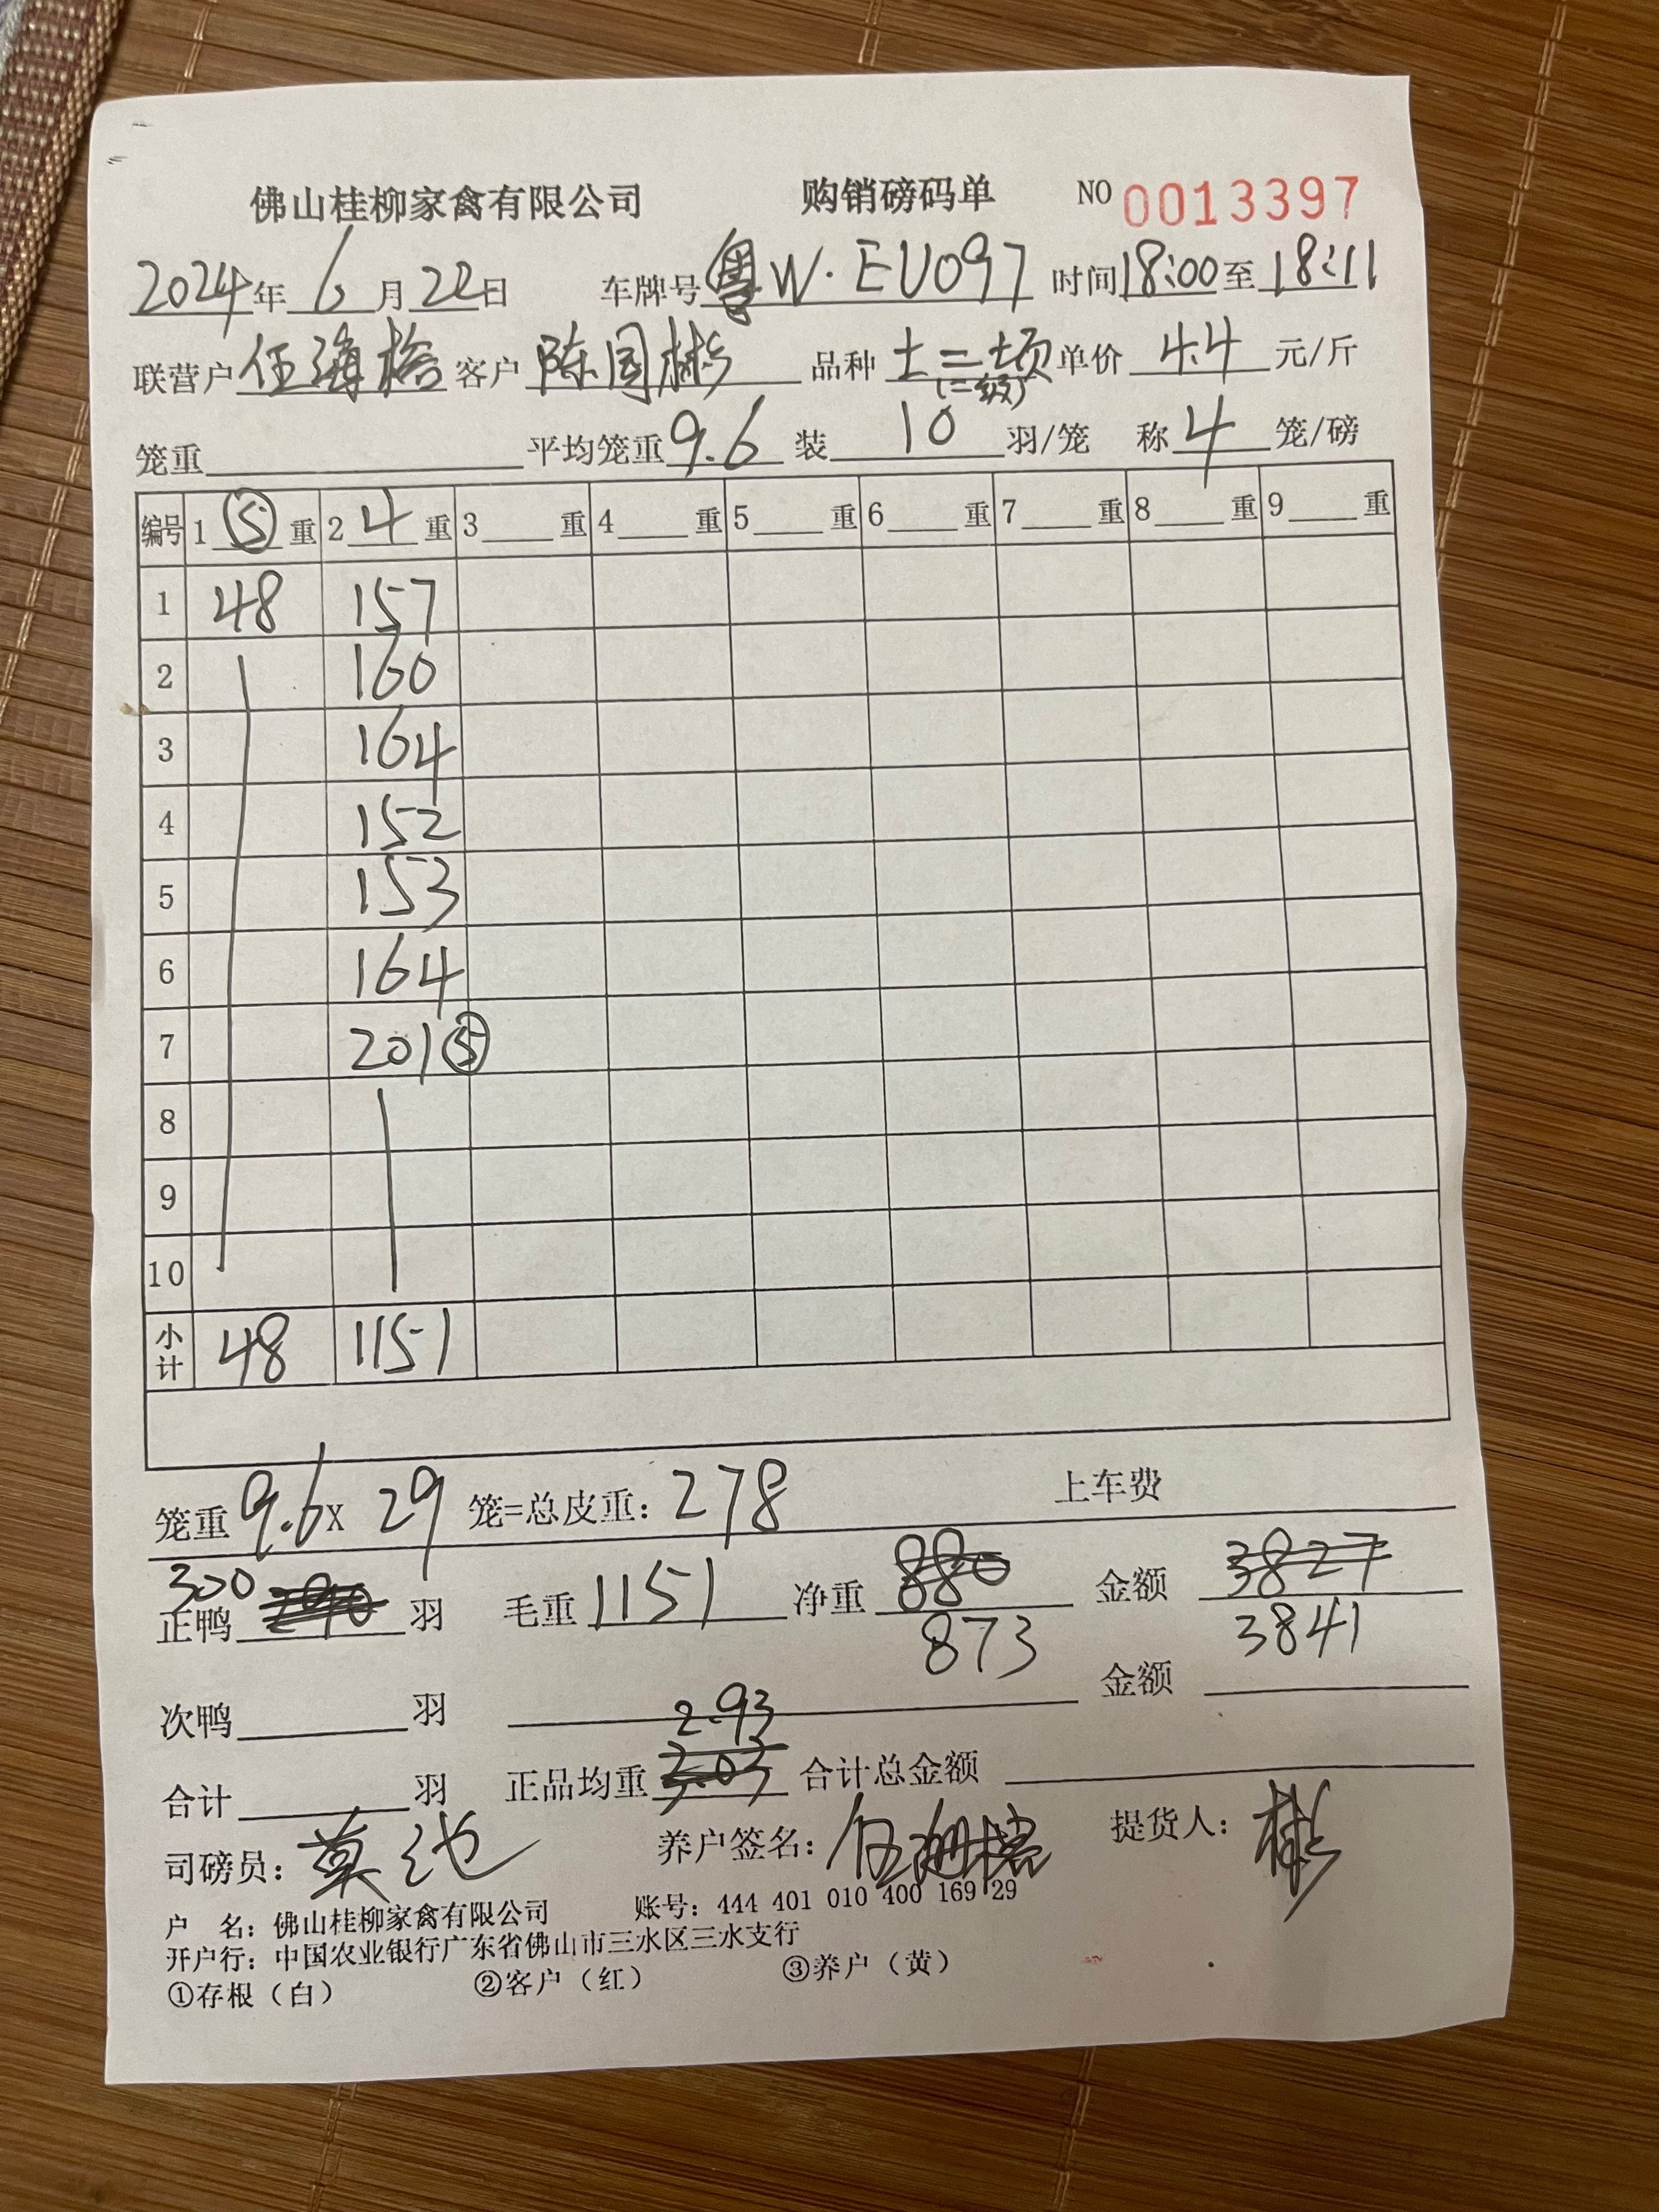 佛山桂柳家禽有限公司 购销磅码单 NO 0013397
2024年 6月 22日 车牌号 粤W·EU097 时间 18:00 至 18:11
联营户 伍海榕 客户 陈国彬 品种 土二顷 单价 4.4 元/斤
(二级)
笼重 平均笼重 9.6 装 10 羽/笼 称 4 笼/磅
编号 1 ⑤ 重 2 4 重 3 重 4 重 5 重 6 重 7 重 8 重 9 重
1 48 157
2 160
3 164
4 152
5 153
6 164
7 201⑤
8
9
10
小计 48 1151
笼重 9.6 X 29 笼=总皮重: 278 上车费
正鸭 300 290 羽 毛重 1151 净重 880 金额 3827
873 3841
次鸭 羽 金额
2.93
合计 羽 正品均重 3.03 合计总金额
司磅员: 莫 养户签名: 伍海榕 提货人: 彬
户 名: 佛山桂柳家禽有限公司 账号: 444 401 010 400 169 29
开户行: 中国农业银行广东省佛山市三水区三水支行
①存根（白） ②客户（红） ③养户（黄）